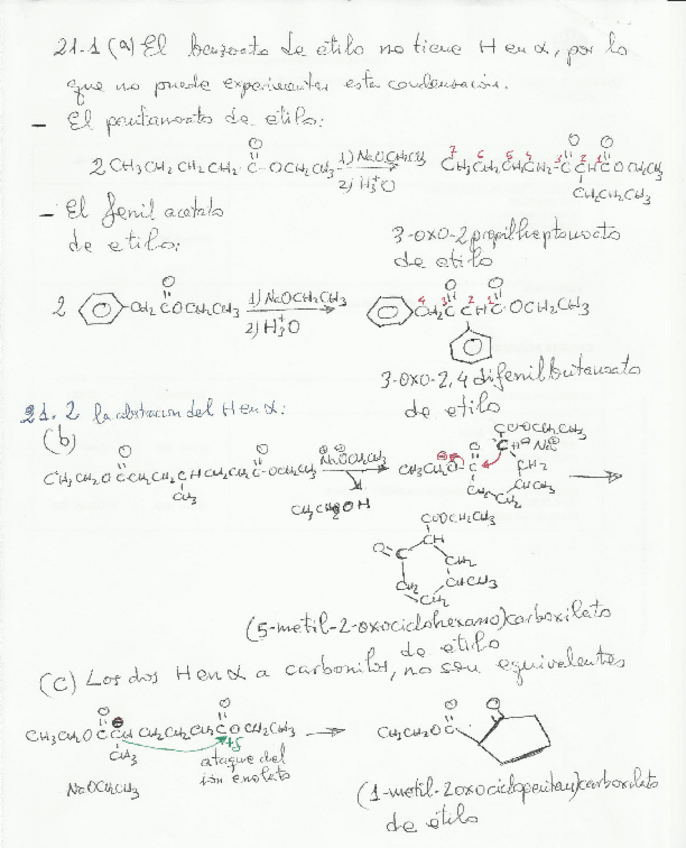 21.1 (a) El benzoato de etilo no tiene H en α, por lo
que no puede experimentar esta condensación.
- El pentanoato de etilo:
O O O
2 CH3CH2CH2CH2·C-OCH2CH3 1) NaOCH2CH3 CH3CH2CH2CH2-C CH C OCH2CH3
2) H3+O
7 6 5 4 3 2 1
CH2CH2CH3
- El fenil acetato
de etilo:
3-oxo-2propilheptanoato
de etilo
O O O
2 CH2 C OCH2CH3 1) NaOCH2CH3 CH2 C CH C OCH2CH3
2) H3+O
4 3 2 1
3-oxo-2,4 difenilbutanoato
de etilo
21.2 la abstracción del H en α:
(b)
COOCH2CH3
O O O CH⊖ Na⊕
CH3CH2O C CH2CH2CHCH2CH2C-OCH2CH3 NaOCH2CH3 CH3CH2O-C CH2
CH3 CHCH3
CH2 CH2
CH3CH2OH
COOCH2CH3
CH
O=C CH2
CH2 CHCH3
CH2
(5-metil-2-oxociclohexano)carboxilato
de etilo
(c) Los dos H en α a carbonilos, no son equivalentes
O O O O
CH3CH2O C CH CH2CH2CH2 C OCH2CH3 CH3CH2O C
CH3 +δ
ataque del
ión enolato
NaOCH2CH3
(1-metil-2oxociclopentan)carboxilato
de etilo